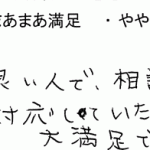 まあまあ満足 ・やや
良い人で、相談
対応していた
大満足で